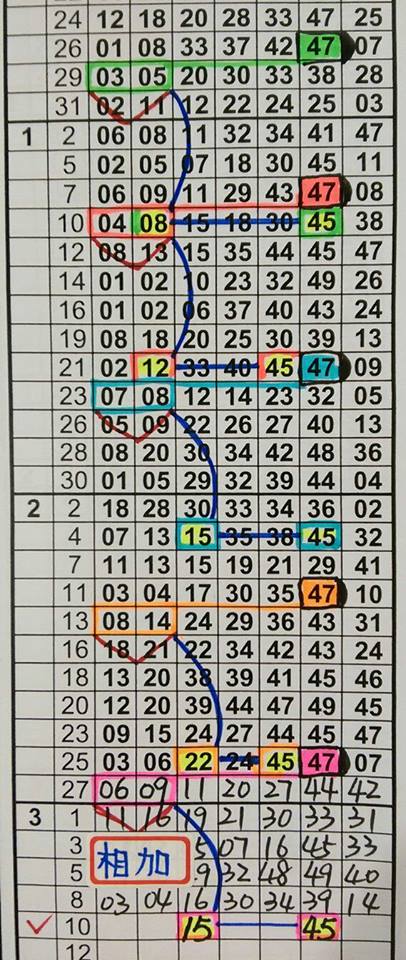 24 12 18 20 28 33 47 25
26 01 08 33 37 42 47 07
29 03 05 20 30 33 38 28
31 02 11 12 22 24 25 03
1 2 06 08 11 32 34 41 47
5 02 05 07 18 30 45 11
7 06 09 11 29 43 47 08
10 04 08 15 18 30 45 38
12 08 13 15 35 44 45 47
14 01 02 10 23 32 49 26
16 01 02 06 37 40 43 24
19 08 18 20 25 30 39 13
21 02 12 33 40 45 47 09
23 07 08 12 14 23 32 05
26 05 09 22 26 27 40 13
28 08 20 30 34 42 48 36
30 01 05 29 32 39 44 04
2 2 18 28 30 33 34 36 02
4 07 13 15 35 38 45 32
7 11 13 15 19 21 29 41
11 03 04 17 30 35 47 10
13 08 14 24 29 36 43 31
16 18 21 22 34 42 43 24
18 13 20 38 39 41 45 46
20 12 20 39 44 47 49 45
23 09 15 24 27 44 45 47
25 03 06 22 24 45 47 07
27 06 09 11 20 27 44 42
3 1 11 16 19 21 30 33 31
3 5 07 16 45 33
相加
5 9 32 48 49 40
8 03 04 16 30 34 39 14
10 15 45
12